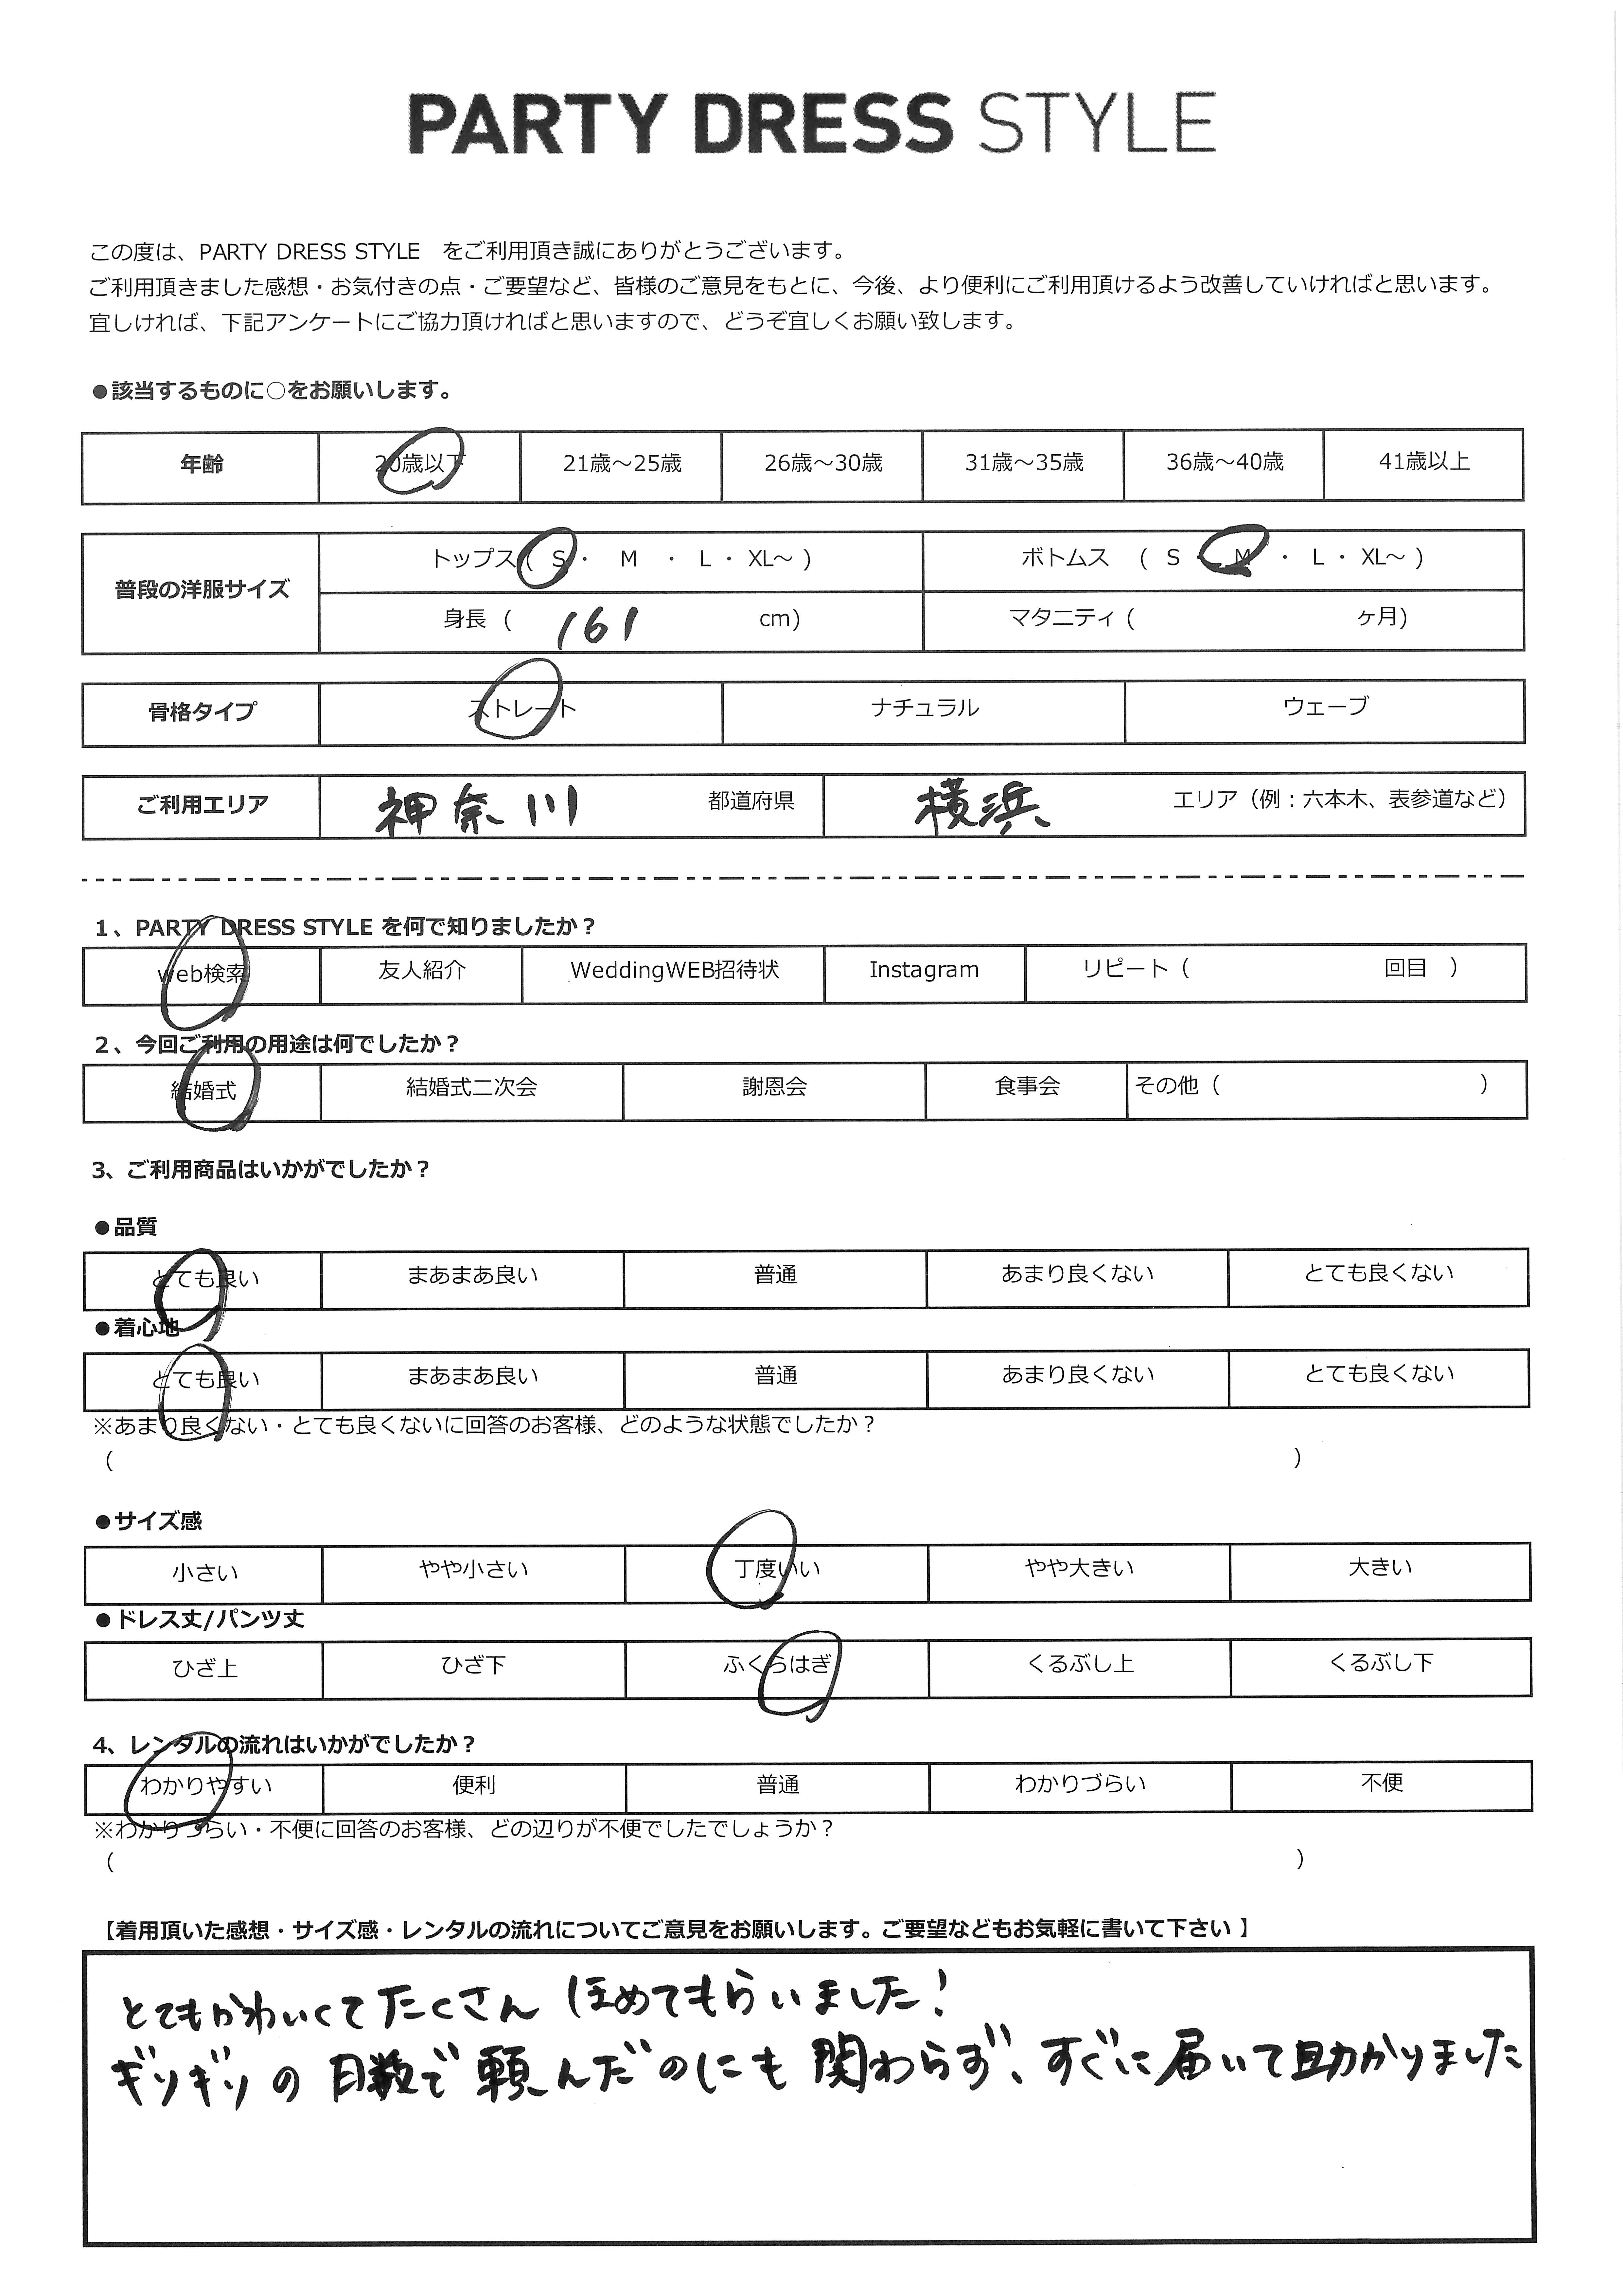 PARTY DRESS STYLE
この度は、PARTY DRESS STYLE　をご利用頂き誠にありがとうございます。
ご利用頂きました感想・お気付きの点・ご要望など、皆様のご意見をもとに、今後、より便利にご利用頂けるよう改善していければと思います。
宜しければ、下記アンケートにご協力頂ければと思いますので、どうぞ宜しくお願い致します。
●該当するものに○をお願いします。
年齢 20歳以下 21歳～25歳 26歳～30歳 31歳～35歳 36歳～40歳 41歳以上
普段の洋服サイズ トップス（ S ・ M ・ L ・ XL～ ） ボトムス （ S ・ M ・ L ・ XL～ ）
身長（ 161 cm） マタニティ（ ヶ月）
骨格タイプ ストレート ナチュラル ウェーブ
ご利用エリア 神奈川 都道府県 横浜 エリア（例：六本木、表参道など）
1、PARTY DRESS STYLE を何で知りましたか？
web検索 友人紹介 WeddingWEB招待状 Instagram リピート（ 回目 ）
2、今回ご利用の用途は何でしたか？
結婚式 結婚式二次会 謝恩会 食事会 その他（ ）
3、ご利用商品はいかがでしたか？
●品質
とても良い まあまあ良い 普通 あまり良くない とても良くない
●着心地
とても良い まあまあ良い 普通 あまり良くない とても良くない
※あまり良くない・とても良くないに回答のお客様、どのような状態でしたか？
（ ）
●サイズ感
小さい やや小さい 丁度いい やや大きい 大きい
●ドレス丈/パンツ丈
ひざ上 ひざ下 ふくらはぎ くるぶし上 くるぶし下
4、レンタルの流れはいかがでしたか？
わかりやすい 便利 普通 わかりづらい 不便
※わかりづらい・不便に回答のお客様、どの辺りが不便でしたでしょうか？
（ ）
【着用頂いた感想・サイズ感・レンタルの流れについてご意見をお願いします。ご要望などもお気軽に書いて下さい 】
とてもかわいくてたくさん ほめてもらいました！
ギリギリの日数で願んだのにも関わらず、すぐに届いて助かりました